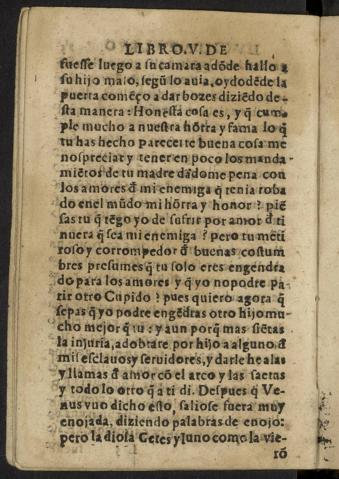 LIBRO.V.DE
fuesse luego a su camara adõde hallo a
su hijo malo, segũ lo auia, oydo dẽde la
puerta comẽço a dar bozes diziẽdo de-
sta manera: Honesta cosa es, y q̃ cum-
ple mucho a nuestra hõrra y fama lo q̃
tu has hecho parecete buena cosa me
nospreciar y tener en poco los manda
miẽtos de tu madre dãdome pena con
los amores d̃ mi enemiga q̃ tenia roba
do enel mũdo mi hõrra y honor? piẽ
sas tu q̃ tẽgo yo de sufrir por amor d̃ ti
nuera q̃ sea mi enemiga? pero tu mẽti
roso y corrompedor d̃ buenas costum
bres presumes q̃ tu solo eres engendra
do para los amores y q̃ yo no podre pa
rir otro Cupido? pues quiero agora q̃
sepas q̃ yo podre engẽdras otro hijo mu-
cho mejor q̃ tu: y aun porq̃ mas siẽtas
la injuria, adobtare por hijo a alguno d̃
mis esclauos y seruidores, y darle he alas
y llamas d̃ amor cõ el arco y las saetas
y todo lo otro q̃ a ti di. Despues q̃ Ve-
nus vuo dicho esto, saliose fuera muy
enojada, diziendo palabras de enojo:
pero la diosa Ceres y Iuno como la vie-
rõ